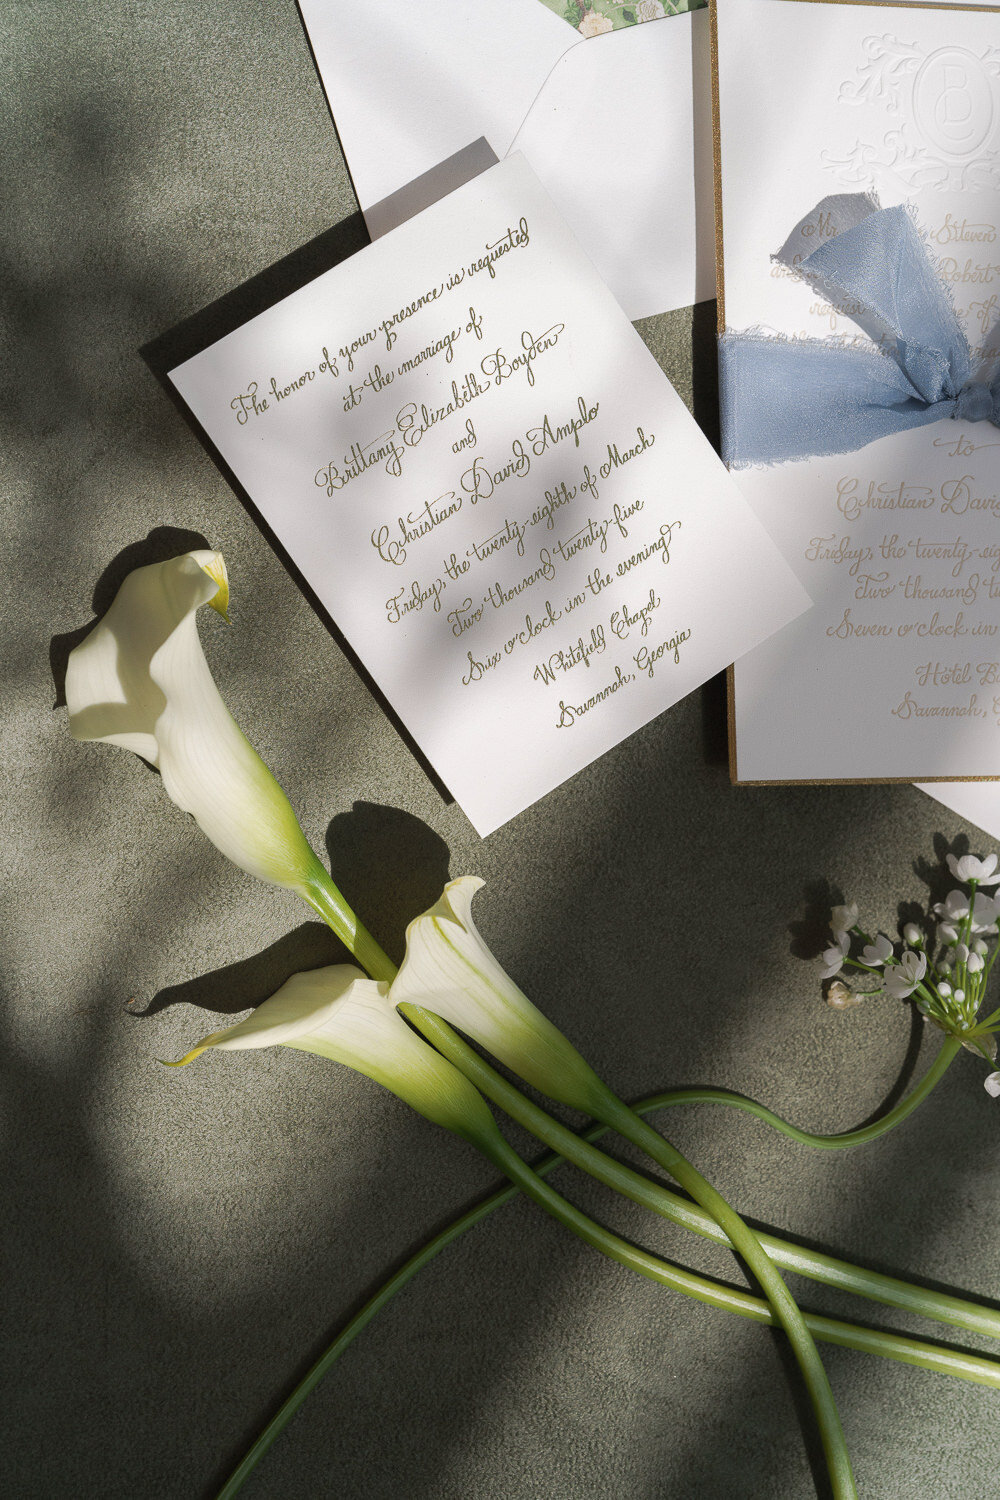 The honor of your presence is requested
at the marriage of
Brittany Elizabeth Boyden
and
Christian David Amplo
Friday, the twenty-eighth of March
Two thousand twenty-five
Six o'clock in the evening
Whitefield Chapel
Savannah, Georgia
B
Mr.
Steven
Robert
request
to
Christian Davi
Friday, the twenty-eig
Two thousand tw
Seven o'clock in
Hôtel B
Savannah, G